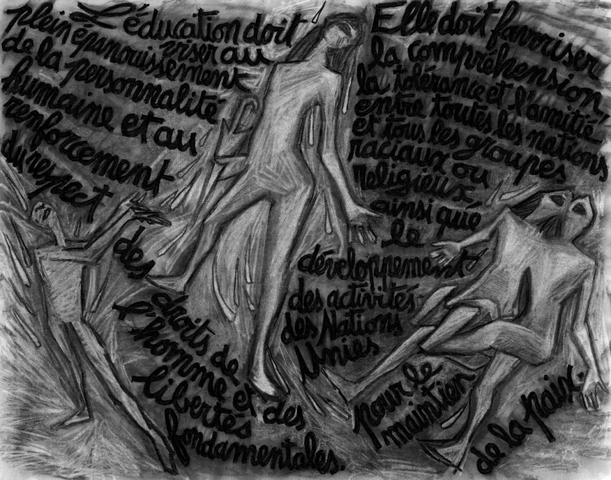 L'éducation doit
viser au
plein épanouissement
de la personnalité
humaine et au
renforcement
du respect
des
droits de
l'homme et des
libertés
fondamentales.
Elle doit favoriser
la compréhension,
la tolérance et l'amitié
entre toutes les nations
et tous les groupes
raciaux ou
religieux
ainsi que
le
développement
des activités
des Nations
Unies
pour le
maintien
de la paix.